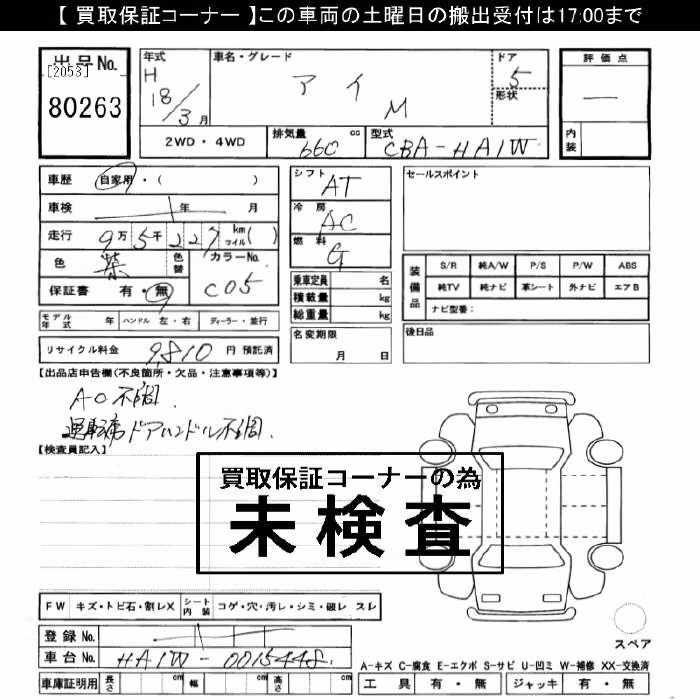 【 買取保証コーナー 】この車両の土曜日の搬出受付は17:00まで
出品No.
[2053]
80263
年式
H
18/3月
車名・グレード
アイ
M
ドア
5
形状
評価点
―
内装
2WD・4WD
排気量
660
cc
型式
CBA-HA1W
車歴
自家用・( )
車検
年 月
走行
9万5千227
km
マイル( )
色
紫
色替
カラーNo.
C05
保証書 有・無
シフト
AT
冷房
AC
燃料
G
乗車定員 名
積載量 kg
総重量 kg
セールスポイント
装備品
S/R 純A/W P/S P/W ABS
純TV 純ナビ 革シート 外ナビ エアB
ナビ型番：
モデル年式 年
ハンドル 左・右
ディーラー・並行
名変期限
月 日
後日品
リサイクル料金 9,810 円 預託済
【出品店申告欄(不良箇所・欠品・注意事項等)】
AC不調.
運転席ドアハンドル不調.
【検査員記入】
買取保証コーナーの為
未検査
FW キズ・トビ石・割レX
シート内装 コゲ・穴・汚レ・シミ・破レ スレ
登録No.
車台No. HA1W-0015448
車庫証明用 長さ cm 幅 cm 高さ cm
スペア
A-キズ C-腐食 E-エクボ S-サビ U-凹ミ W-補修 XX-交換済
工具 有・無 ジャッキ 有・無